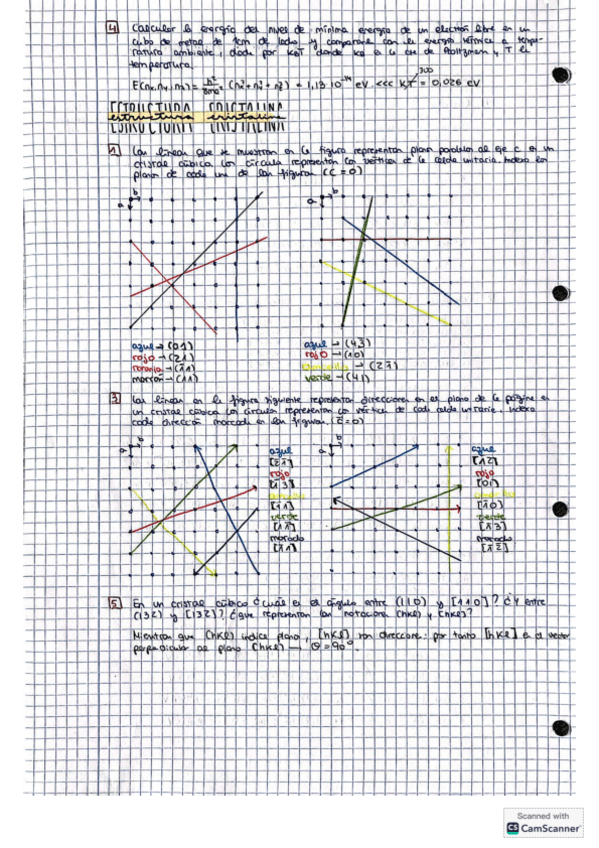 4 Calcular la energía del nivel de mínima energía de un electrón libre en un
cubo de metal de 1cm de lado y compararla con la energía térmica a tempe-
ratura ambiente, dada por KBT donde KB es la cte de Boltzmann y T la
temperatura.
E(nx, ny, nz) = h²/8ma² (nx² + ny² + nz²) = 1,13·10⁻¹⁴ eV <<< KBT = 0,026 eV
300
ESTRUCTURA CRISTALINA
1 Las líneas que se muestran en la figura representan planos paralelos al eje c en un
cristal cúbico. Los círculos representan los vértices de la celda unitaria. Indexa los
planos de cada una de las figuras (c=0)
b
a
b
a
azul → (01)
rojo → (21)
naranja → (11)
marrón → (11)
azul → (43)
rojo → (10)
→ (21)
verde → (41)
3 Las líneas en la figura siguiente representan direcciones en el plano de la página en
un cristal cúbico. Los círculos representan los vértices de cada celda unitaria. Indexa
cada dirección marcada en las figuras. (c=0)
b
a
b
a
azul
rojo
verde
morado
azul
[12]
rojo
[01]
verde
morado
5 En un cristal cúbico ¿cuál es el ángulo entre (110) y [110]? ¿Y entre
(132) y [132]? ¿Qué representan las notaciones (hkl) y [hkl]?
Mientras que (hkl) indica plano, [hkl] son direcciones; por tanto [hkl] es el vector
perpendicular al plano (hkl) → θ = 90°.
Scanned with
CS CamScanner